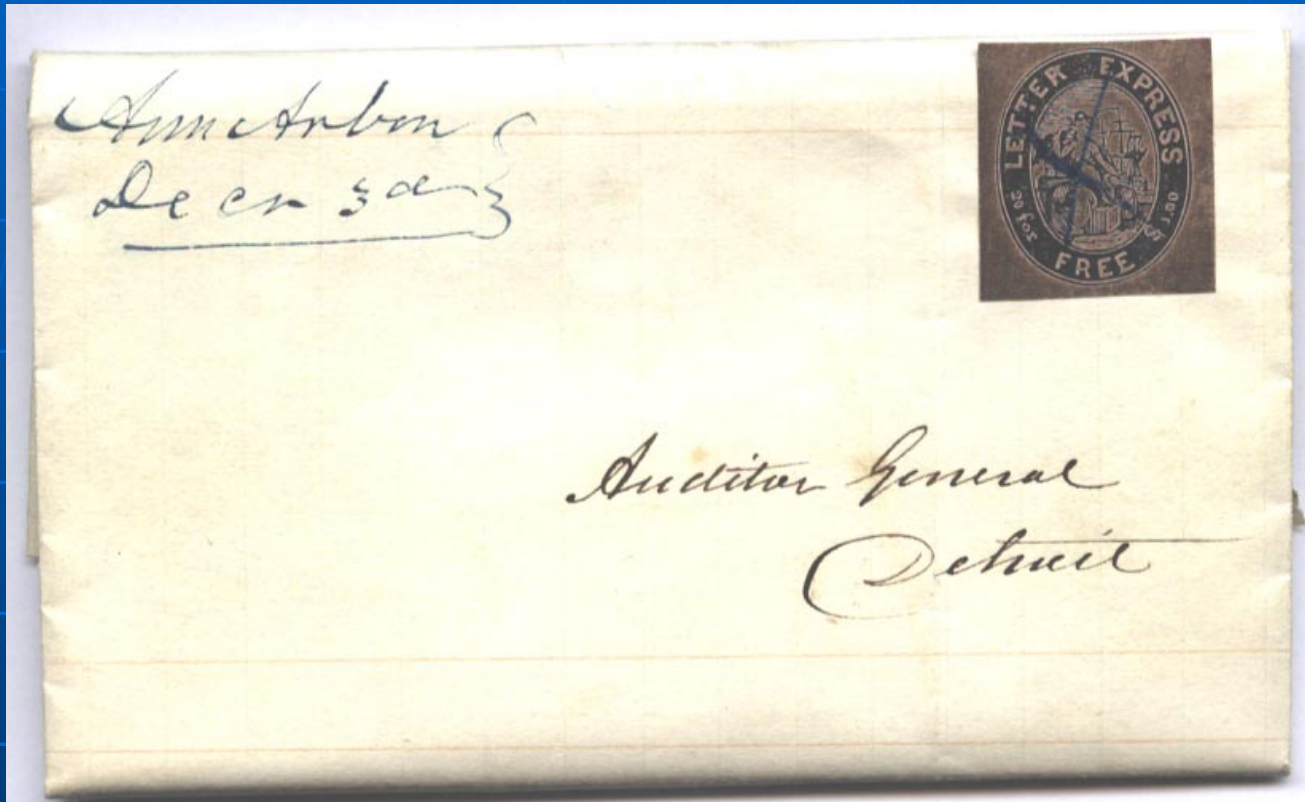 Ann Arbor
Decr 3d
LETTER EXPRESS
20 for $1.00
FREE
Auditor General
Detroit